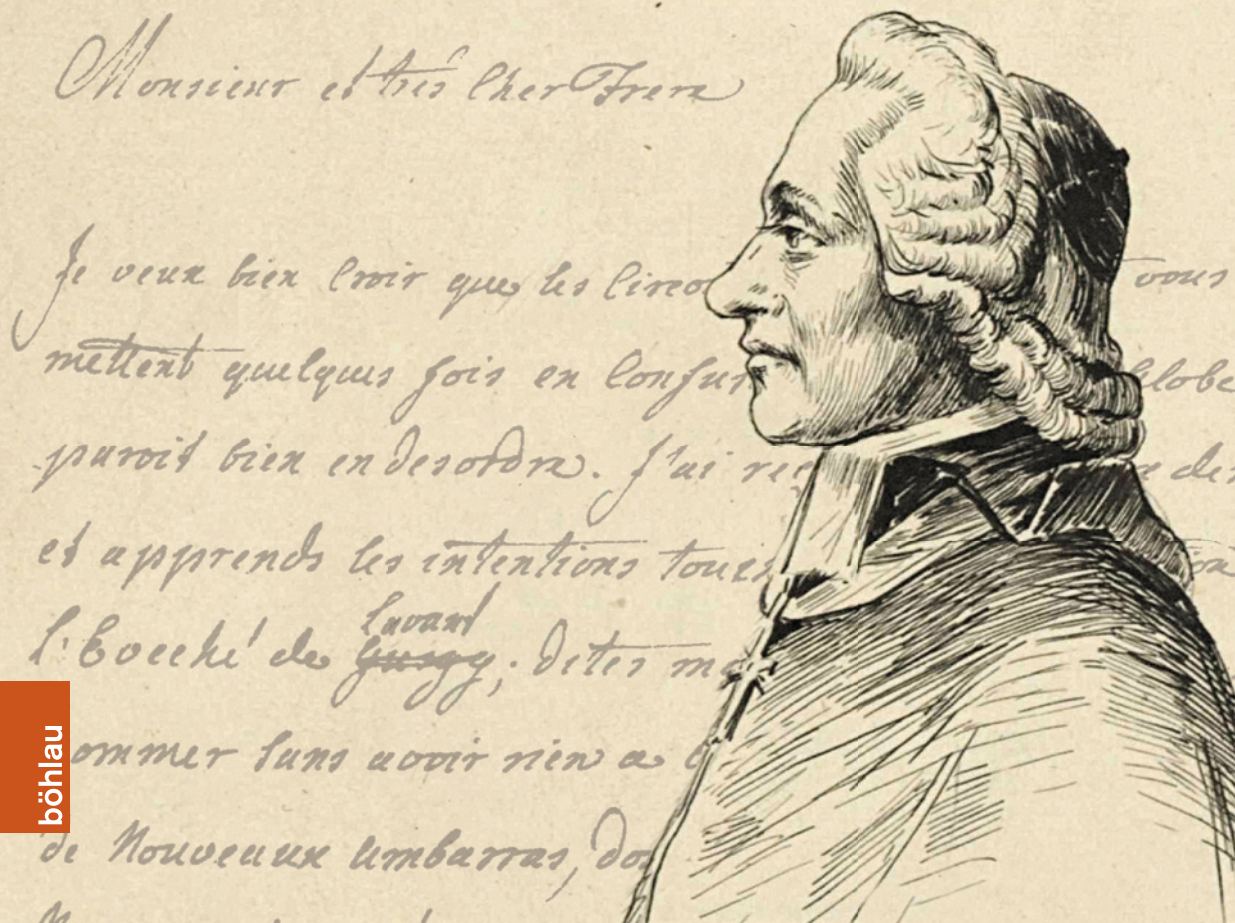 Monsieur et trés Cher Frere
Je veux bien Croir que les Circo vous
mettent quelques fois en Confus Globe
paroit bien en desordre. J'ai re de
et apprends les intentions tou
Lavant
l'Eveché de ; dites m
ommer sans avoir rien a
de Nouveaux Embarras, do
böhlau